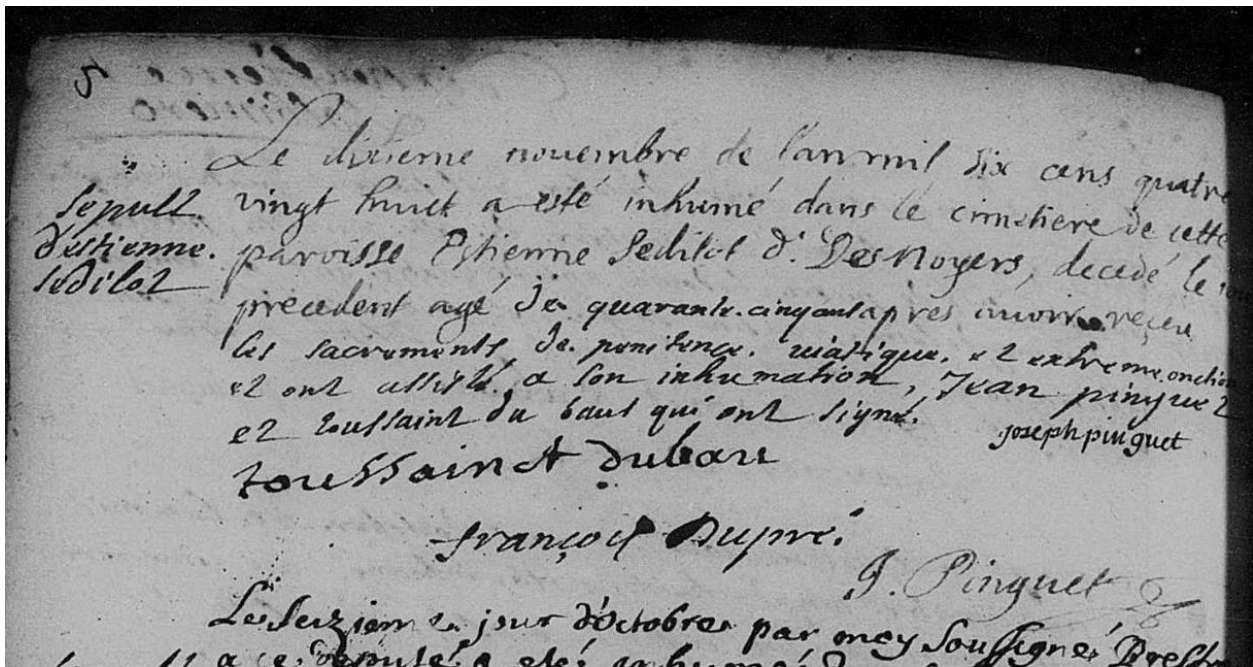 5
Le dixieme nouembre de l'an mil six cens quatre
Sepult. vingt huict a esté inhumé dans le cimetiere de cette
d'estienne. parroisse Estienne Sedilot d. Des Noyers, decedé le jour
sedilot precedent agé de quarante. cinq ans apres auoir reçeu
les sacrements de penitence. uiatique. et extreme. onction
et ont assisté a son inhumation, Jean pinguet
et toussaint du baut qui ont signé.
joseph pinguet
toussainct dubau
françois Dupré.
J. Pinguet
Le seiziem e jour d'octobre par moy soussigné
a ce deputé a eté inhumé